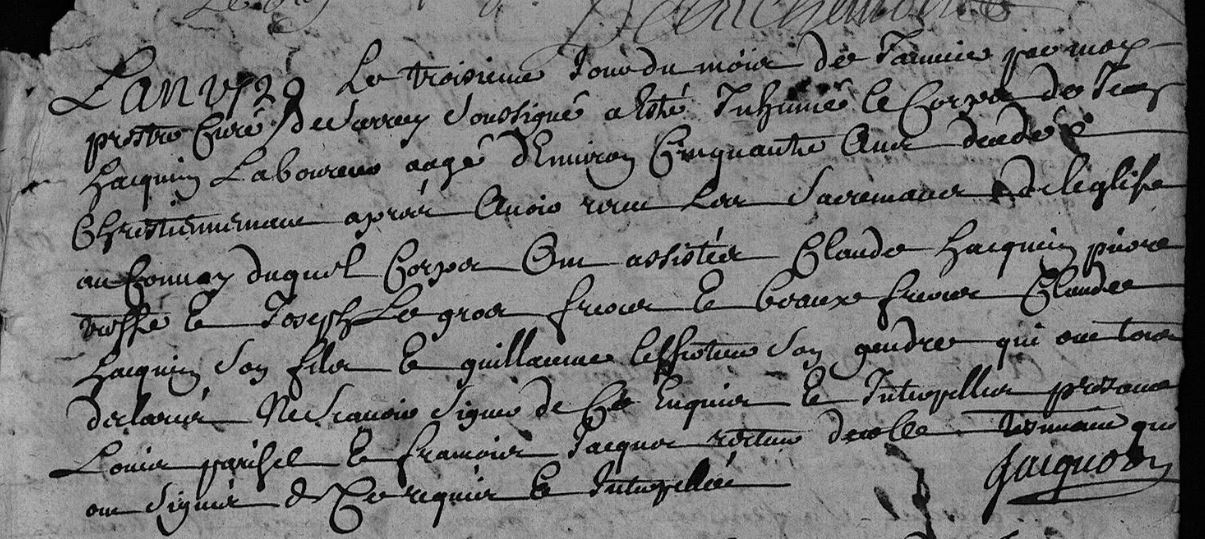 L'an 1729 Le troisieme Jour du mois de Januie par moy
prestre Curé de Sarrey Soussigné a esté Inhumé le Corps de Jean
hacquin Laboureur aagé d'Environ Cinquante Ans decedé
Chrestiennemant apres Auoir receu Les Sacremans de l'églises
au Conuoy duquel Corps Ont assistés Claude hacquin pierre
et Joseph Le gros freres et beaux freres Claude
hacquin Son fils et guillaume Son gendre qui ont tous
declarés Ne scauoir Signer de Ce Enquis et Interpellés presans
Louis parisel et francois Jacquot recteur d'ecolle tesmoins qui
ont Signés de Ce requis et Interpellés
Jacquot